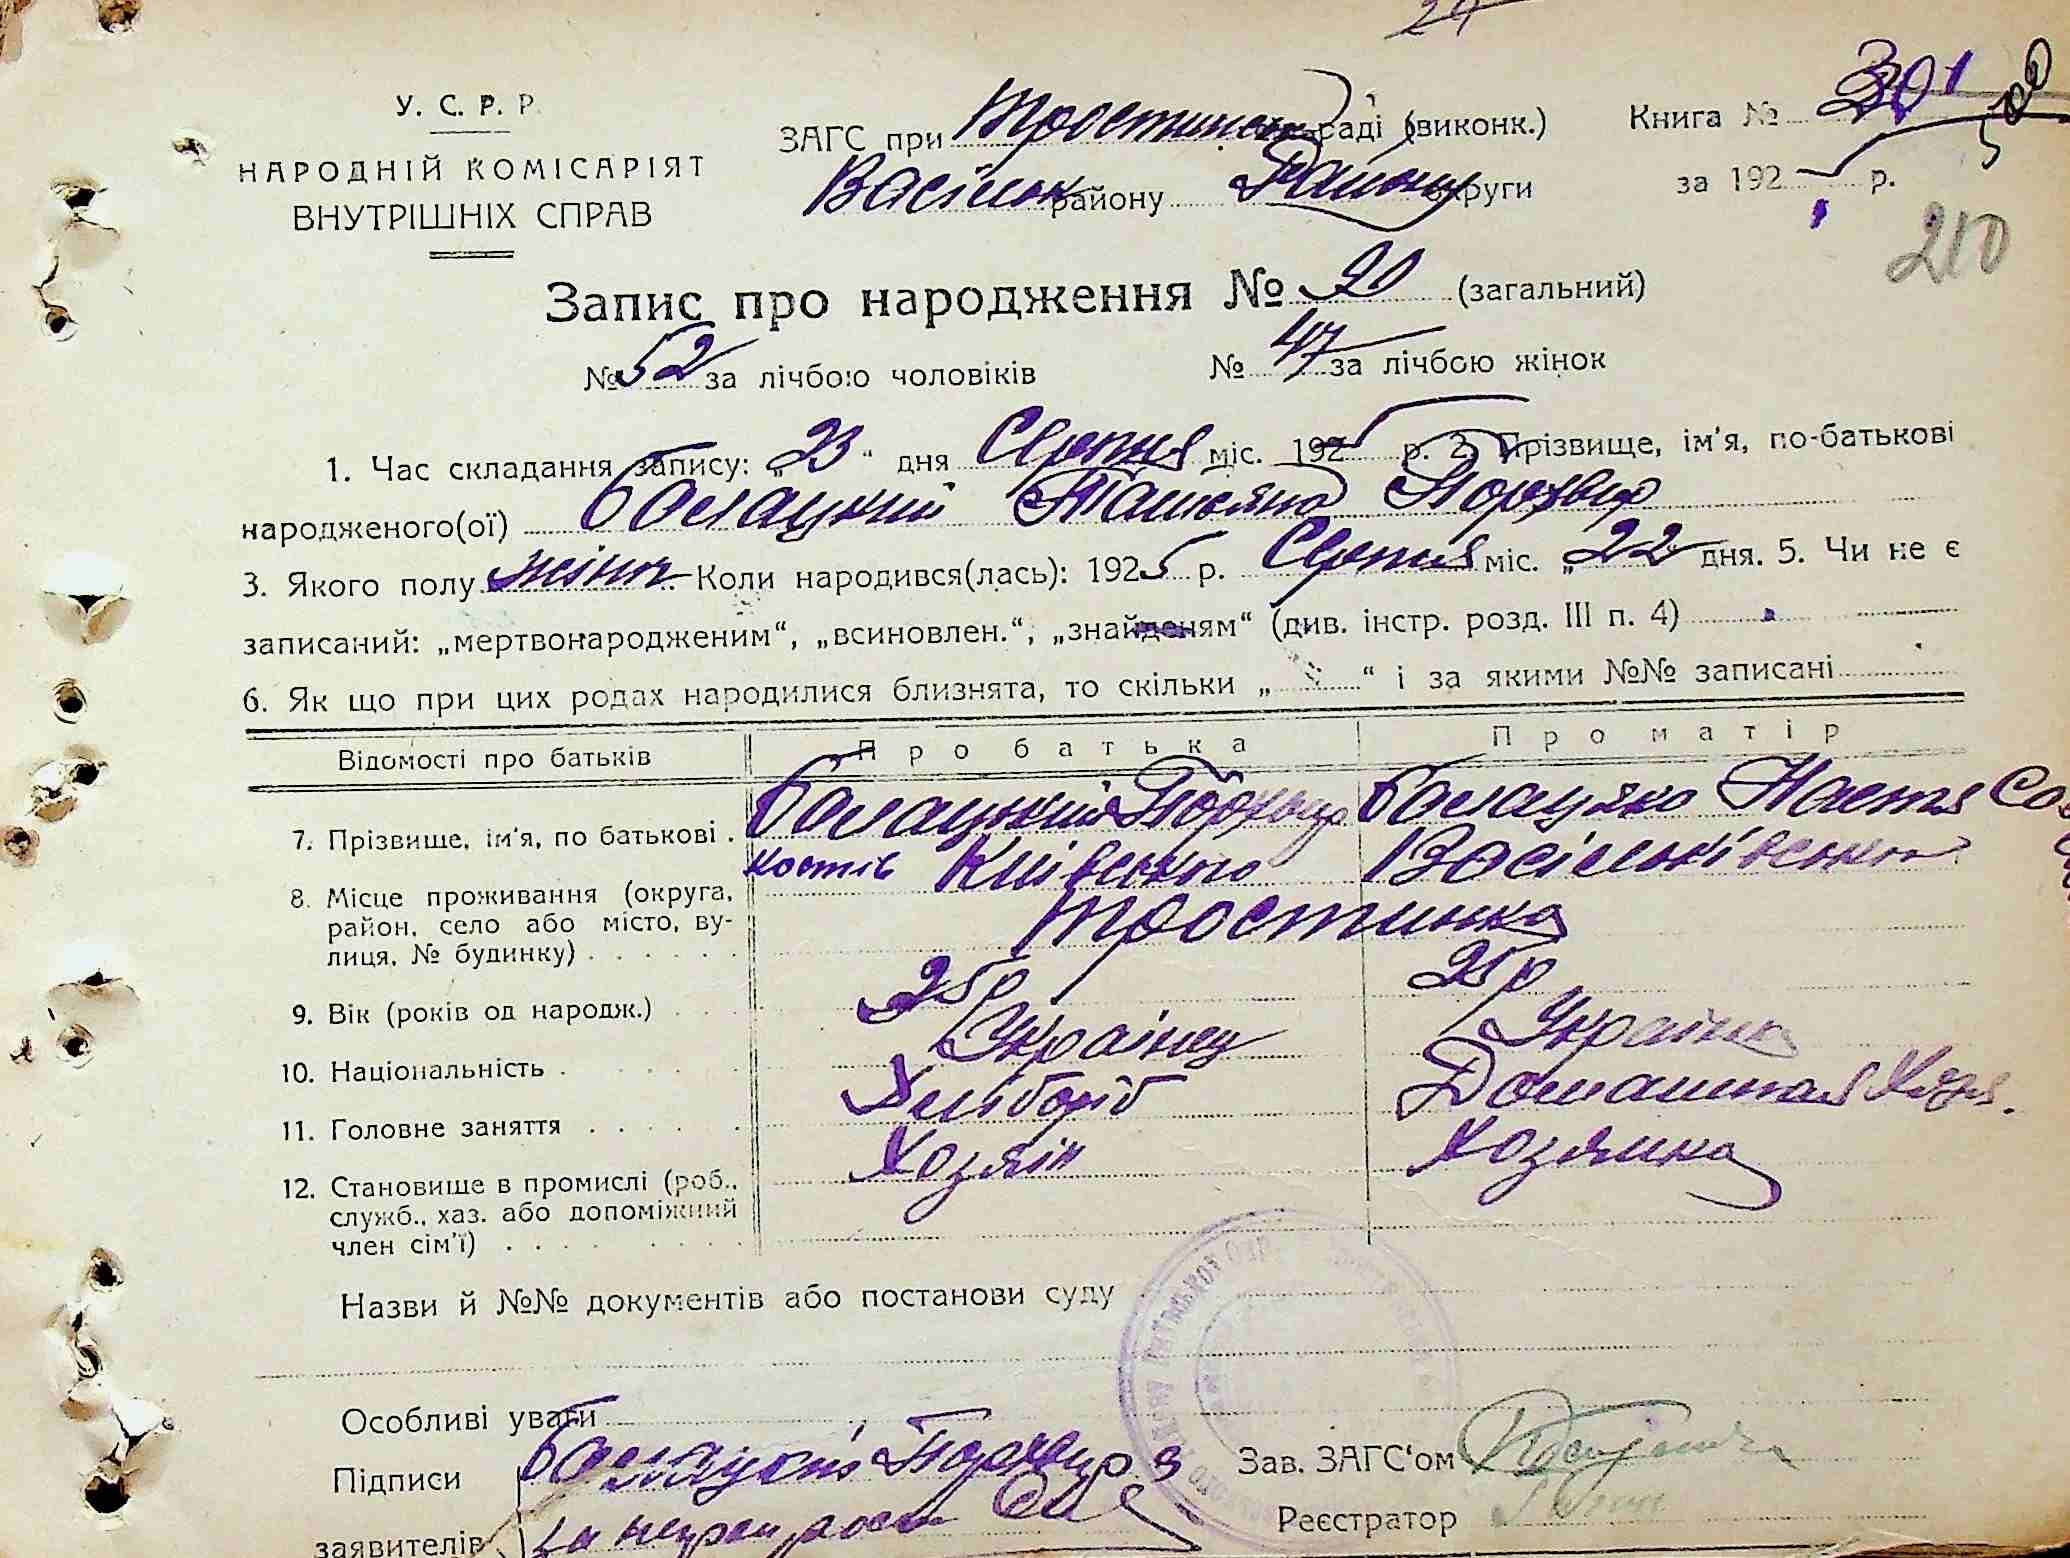 24
У. С. Р. Р.
НАРОДНІЙ КОМІСАРІЯТ
ВНУТРІШНІХ СПРАВ
ЗАГС при Тростинськ раді (виконк.)
Васільк району Району округи
Книга № 301
500
за 192 р.
210
Запис про народження № 90 (загальний)
№ 52 за лічбою чоловіків № 47 за лічбою жінок
1. Час складання запису: „23“ дня Серпня міс. 1925 р. 2. Прізвище, ім'я, по-батькові
народженого(ої) Балацкий Татьяна
3. Якого полу жіноч Коли народився(лась): 1925 р. Серпня міс. „22 дня. 5. Чи не є
записаний: „мертвонародженим“, „всиновлен.“, „знайденям“ (див. інстр. розд. III п. 4)
6. Як що при цих родах народилися близнята, то скільки „ “ і за якими №№ записані
Відомості про батьків Про батька Про матір
7. Прізвище, ім'я, по батькові . Балацкий Настя
костів Київського Васільківського
8. Місце проживання (округа,
район, село або місто, ву-
лиця, № будинку) Тростинка
9. Вік (років од народж.) 25р 25р
10. Національність Українец Українка
11. Головне заняття Хлібороб Домашная Хозя.
12. Становище в промислі (роб., Хозяін Хозяика
служб., хаз. або допоміжний
член сім'ї)
Назви й №№ документів або постанови суду
Особливі уваги
Підписи Балацкий
заявителів
Зав. ЗАГС'ом
Реєстратор